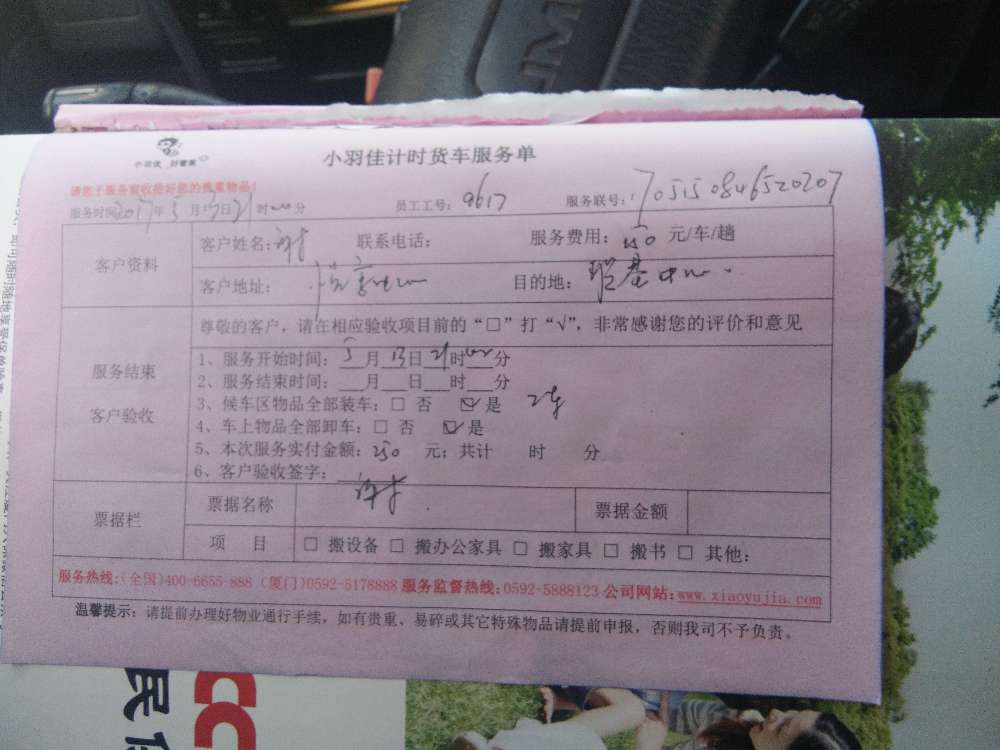 小羽佳 好管家
小羽佳计时货车服务单
请您于服务前收捡好您的贵重物品！
服务时间2017年5月13日21时00分 员工工号：9617 服务联号：1705150846520207
客户资料
客户姓名： 联系电话： 服务费用：250元/车/趟
客户地址： 目的地：瑞基中心
尊敬的客户，请在相应验收项目前的“□”打“√”，非常感谢您的评价和意见
服务结束
客户验收
1、服务开始时间：5月13日21时00分
2、服务结束时间：___月___日___时___分
3、候车区物品全部装车：□ 否 ☑ 是 2车
4、车上物品全部卸车：□ 否 ☑ 是
5、本次服务实付金额：250 元；共计 时 分
6、客户验收签字：
票据栏
票据名称 票据金额
项 目 □ 搬设备 □ 搬办公家具 □ 搬家具 □ 搬书 □ 其他：
服务热线：(全国)400-6655-888 (厦门)0592-5178888 服务监督热线：0592-5888123 公司网站：www.xiaoyujia.com
温馨提示：请提前办理好物业通行手续，如有贵重、易碎或其它特殊物品请提前申报，否则我司不予负责。